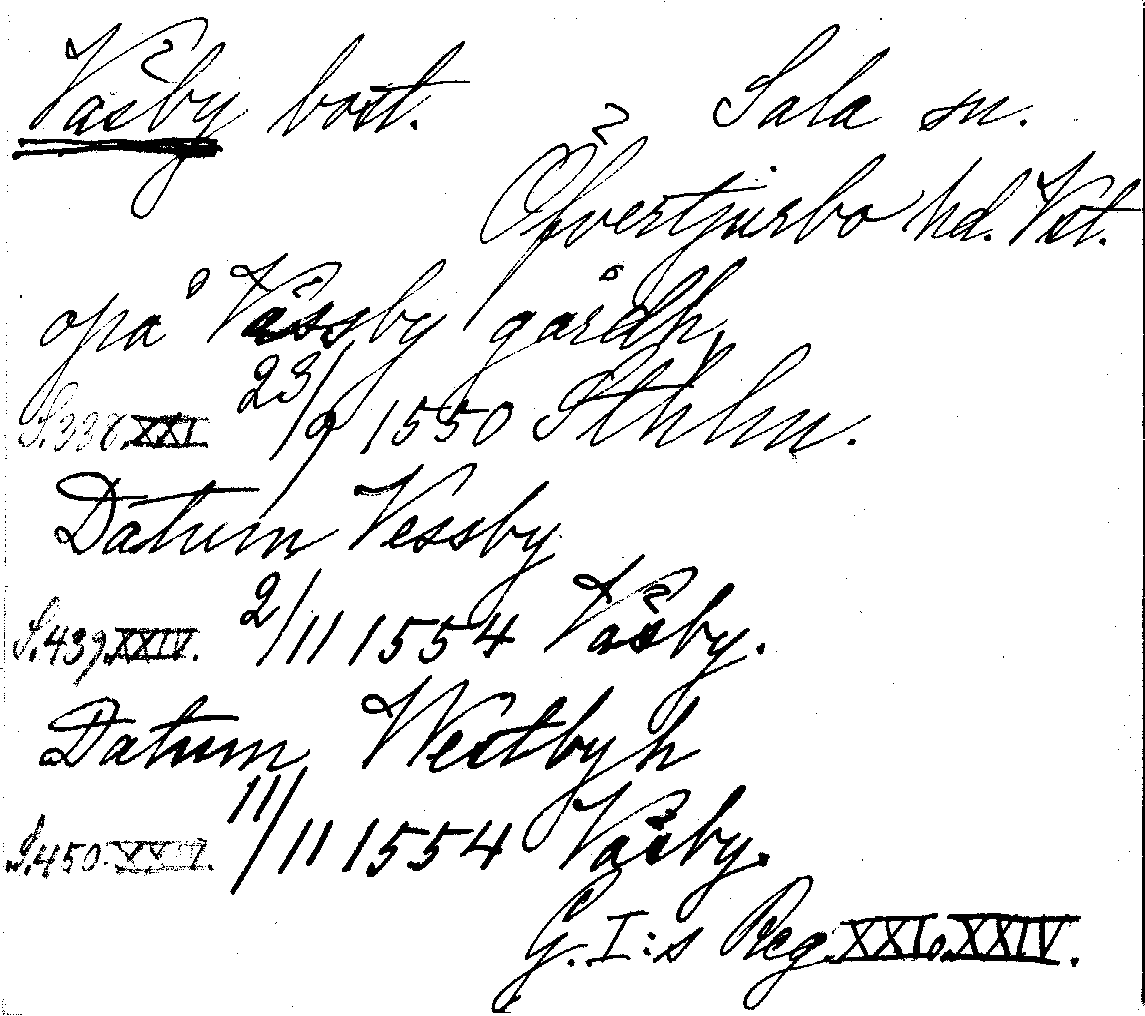 Väsby bost. Sala sn.
Öfvertjurbo hd. Vst.
opå Vässby gårdh,
S.338 XXI. 23/9 1550 Sthlm.
Datum Vessby
S.439 XXIV. 2/11 1554 Väsby.
Datum Westbyh
S.450 XXIV. 11/11 1554 Väsby.
G.I:s Reg. XXI o. XXIV.